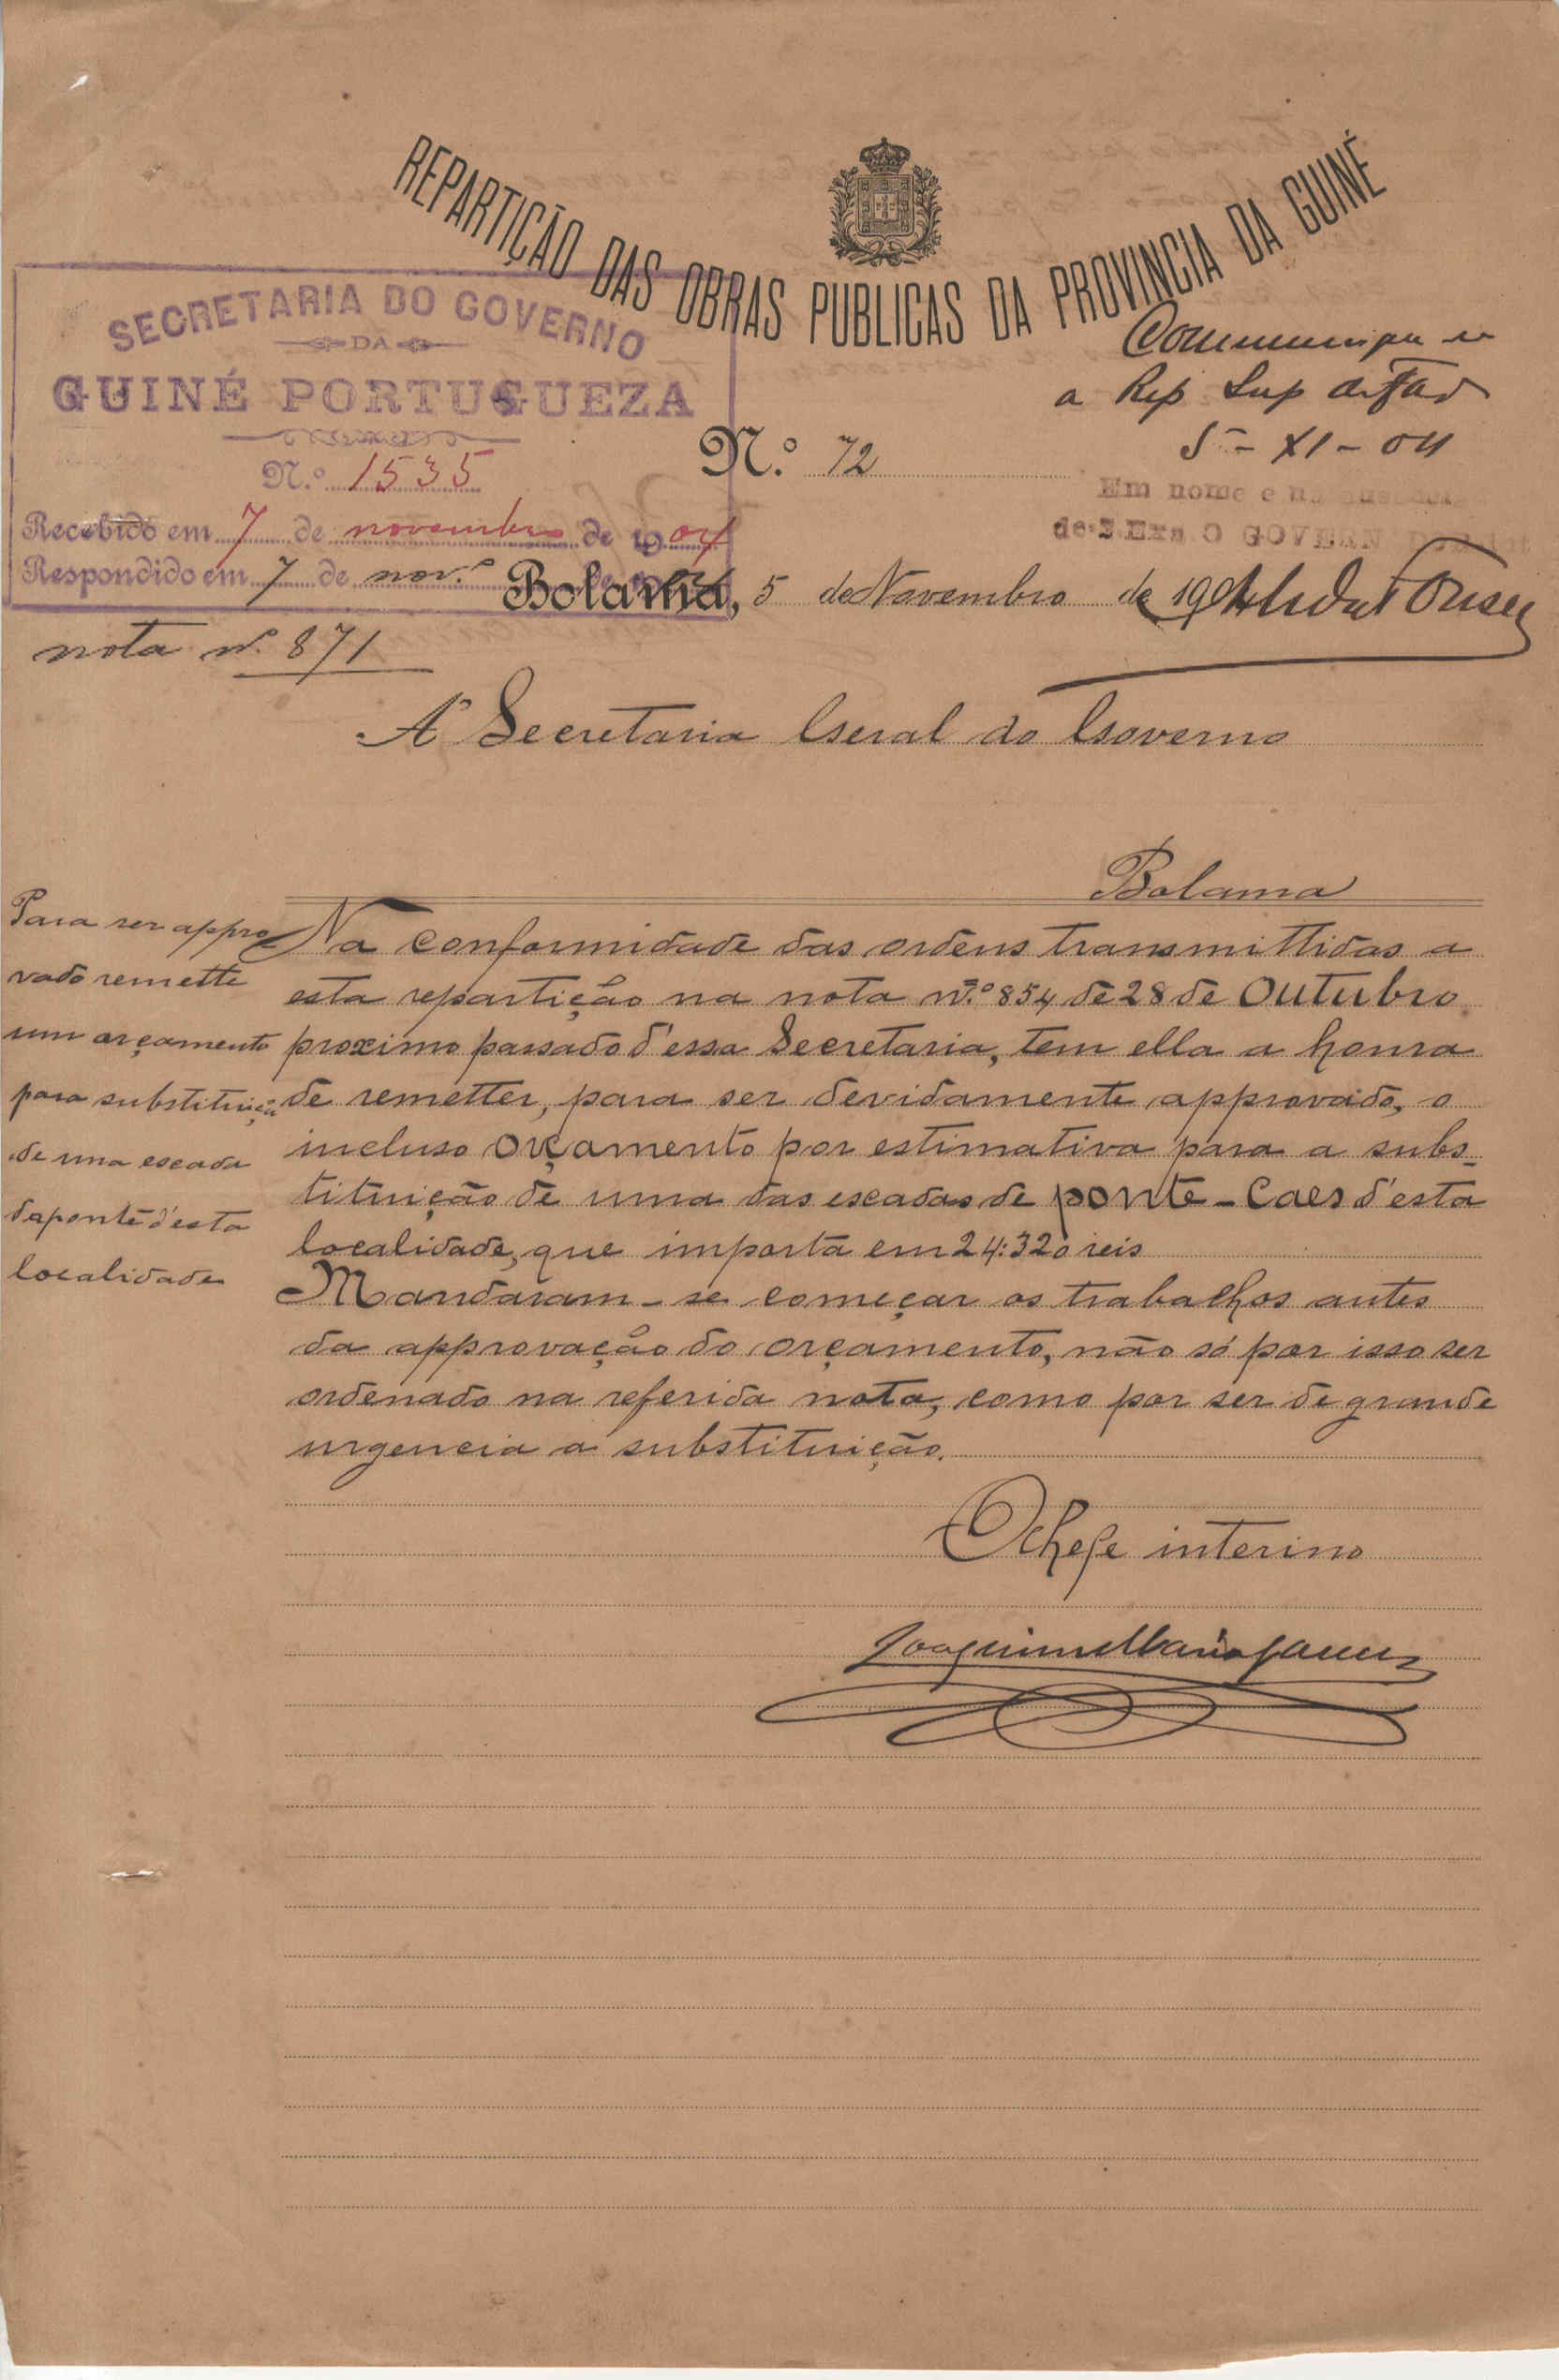 REPARTIÇÃO DAS OBRAS PUBLICAS DA PROVINCIA DA GUINÉ
SECRETARIA DO GOVERNO
DA
GUINÉ PORTUGUEZA
N.º 1535
Recebido em 7 de novembro de 1904
Respondido em 7 de nov.º de
nota nº 871
a Rep Sup
5-XI-04
Em nome e na
de S. Exa O GOVERN
N.º 72
Bolama, 5 de Novembro de 1904
A' Secretaria Geral do Governo
Bolama
Para ser appro
vado remette
um orçamento
para substituição
de uma escada
da ponte d'esta
localidade
Na conformidade das ordens transmittidas a
esta repartição na nota n.º 854 de 28 de Outubro
proximo passado d'essa Secretaria, tem ella a honra
de remetter, para ser devidamente approvado, o
incluso orçamento por estimativa para a subs-
tituição de uma das escadas de ponte-caes d'esta
localidade, que importa em 24:320 reis
Mandaram-se começar os trabalhos antes
da approvação do orçamento, não só por isso ser
ordenado na referida nota, como por ser de grande
urgencia a substituição.
O chefe interino
Joaquim Maria